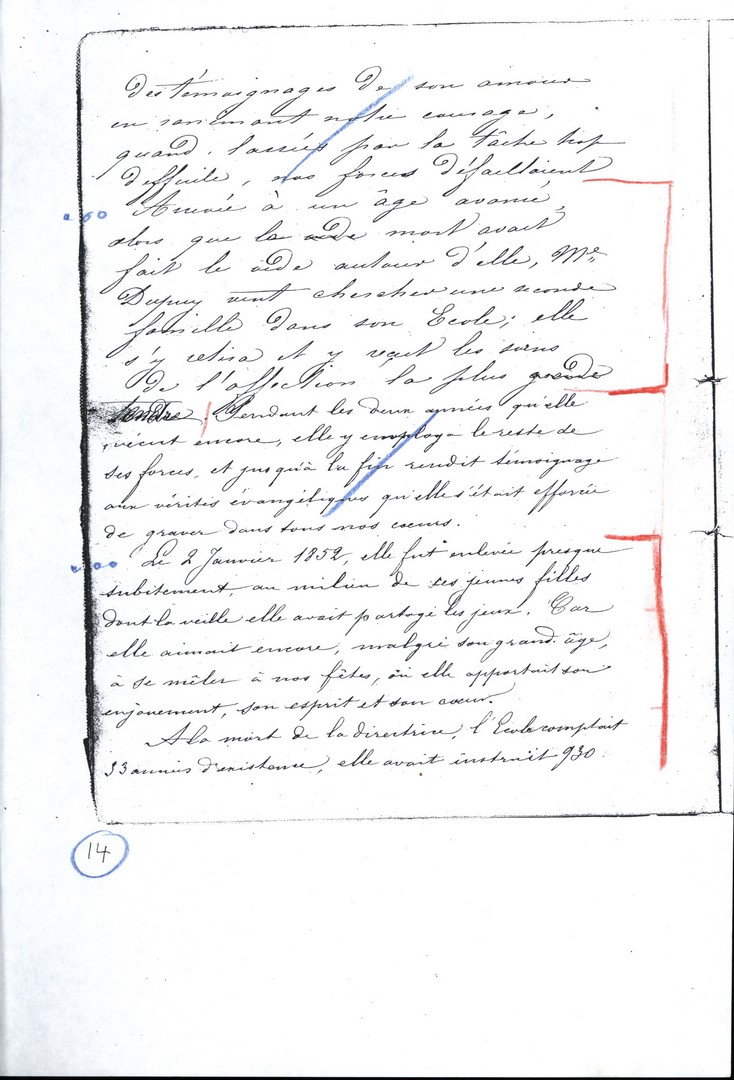 des témoignages de son amour
en ranimant notre courage,
quand, lassés par la tâche trop
difficile, nos forces défaillaient
Arrivée à un âge avancé,
alors que la mort avait
fait le vide autour d'elle, Me
Dupuy vint chercher une seconde
famille dans son Ecole; elle
s'y retira et y reçut les soins
de l'affection la plus grande
tendre. Pendant les deux années qu'elle
vécut encore, elle y employa le reste de
ses forces, et jusqu'à la fin rendit témoignage
aux vérités évangéliques qu'elle s'était efforcée
de graver dans tous nos coeurs.
Le 2 Janvier 1852, elle fut enlevée presque
subitement, au milieu de ses jeunes filles
dont la veille elle avait partagé les jeux. Car
elle aimait encore, malgré son grand âge,
à se mêler à nos fêtes, où elle apportait son
enjouement, son esprit et son coeur.
A la mort de la directrice, l'Ecole comptait
33 années d'existence, elle avait instruit 930
14